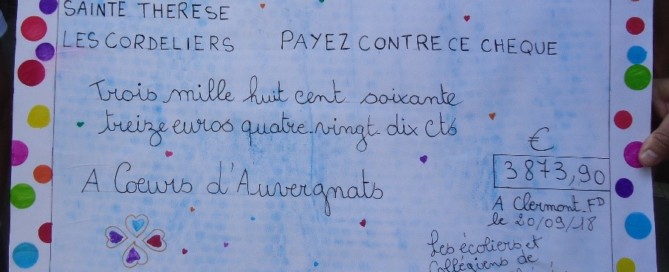 SAINTE THERESE
LES CORDELIERS PAYEZ CONTRE CE CHEQUE
Trois mille huit cent soixante
treize euros quatre-vingt dix cts
€
3873,90
A Coeurs d'Auvergnats
A Clermont-FD
le 20/09/18
Les écoliers et
Collégiens de